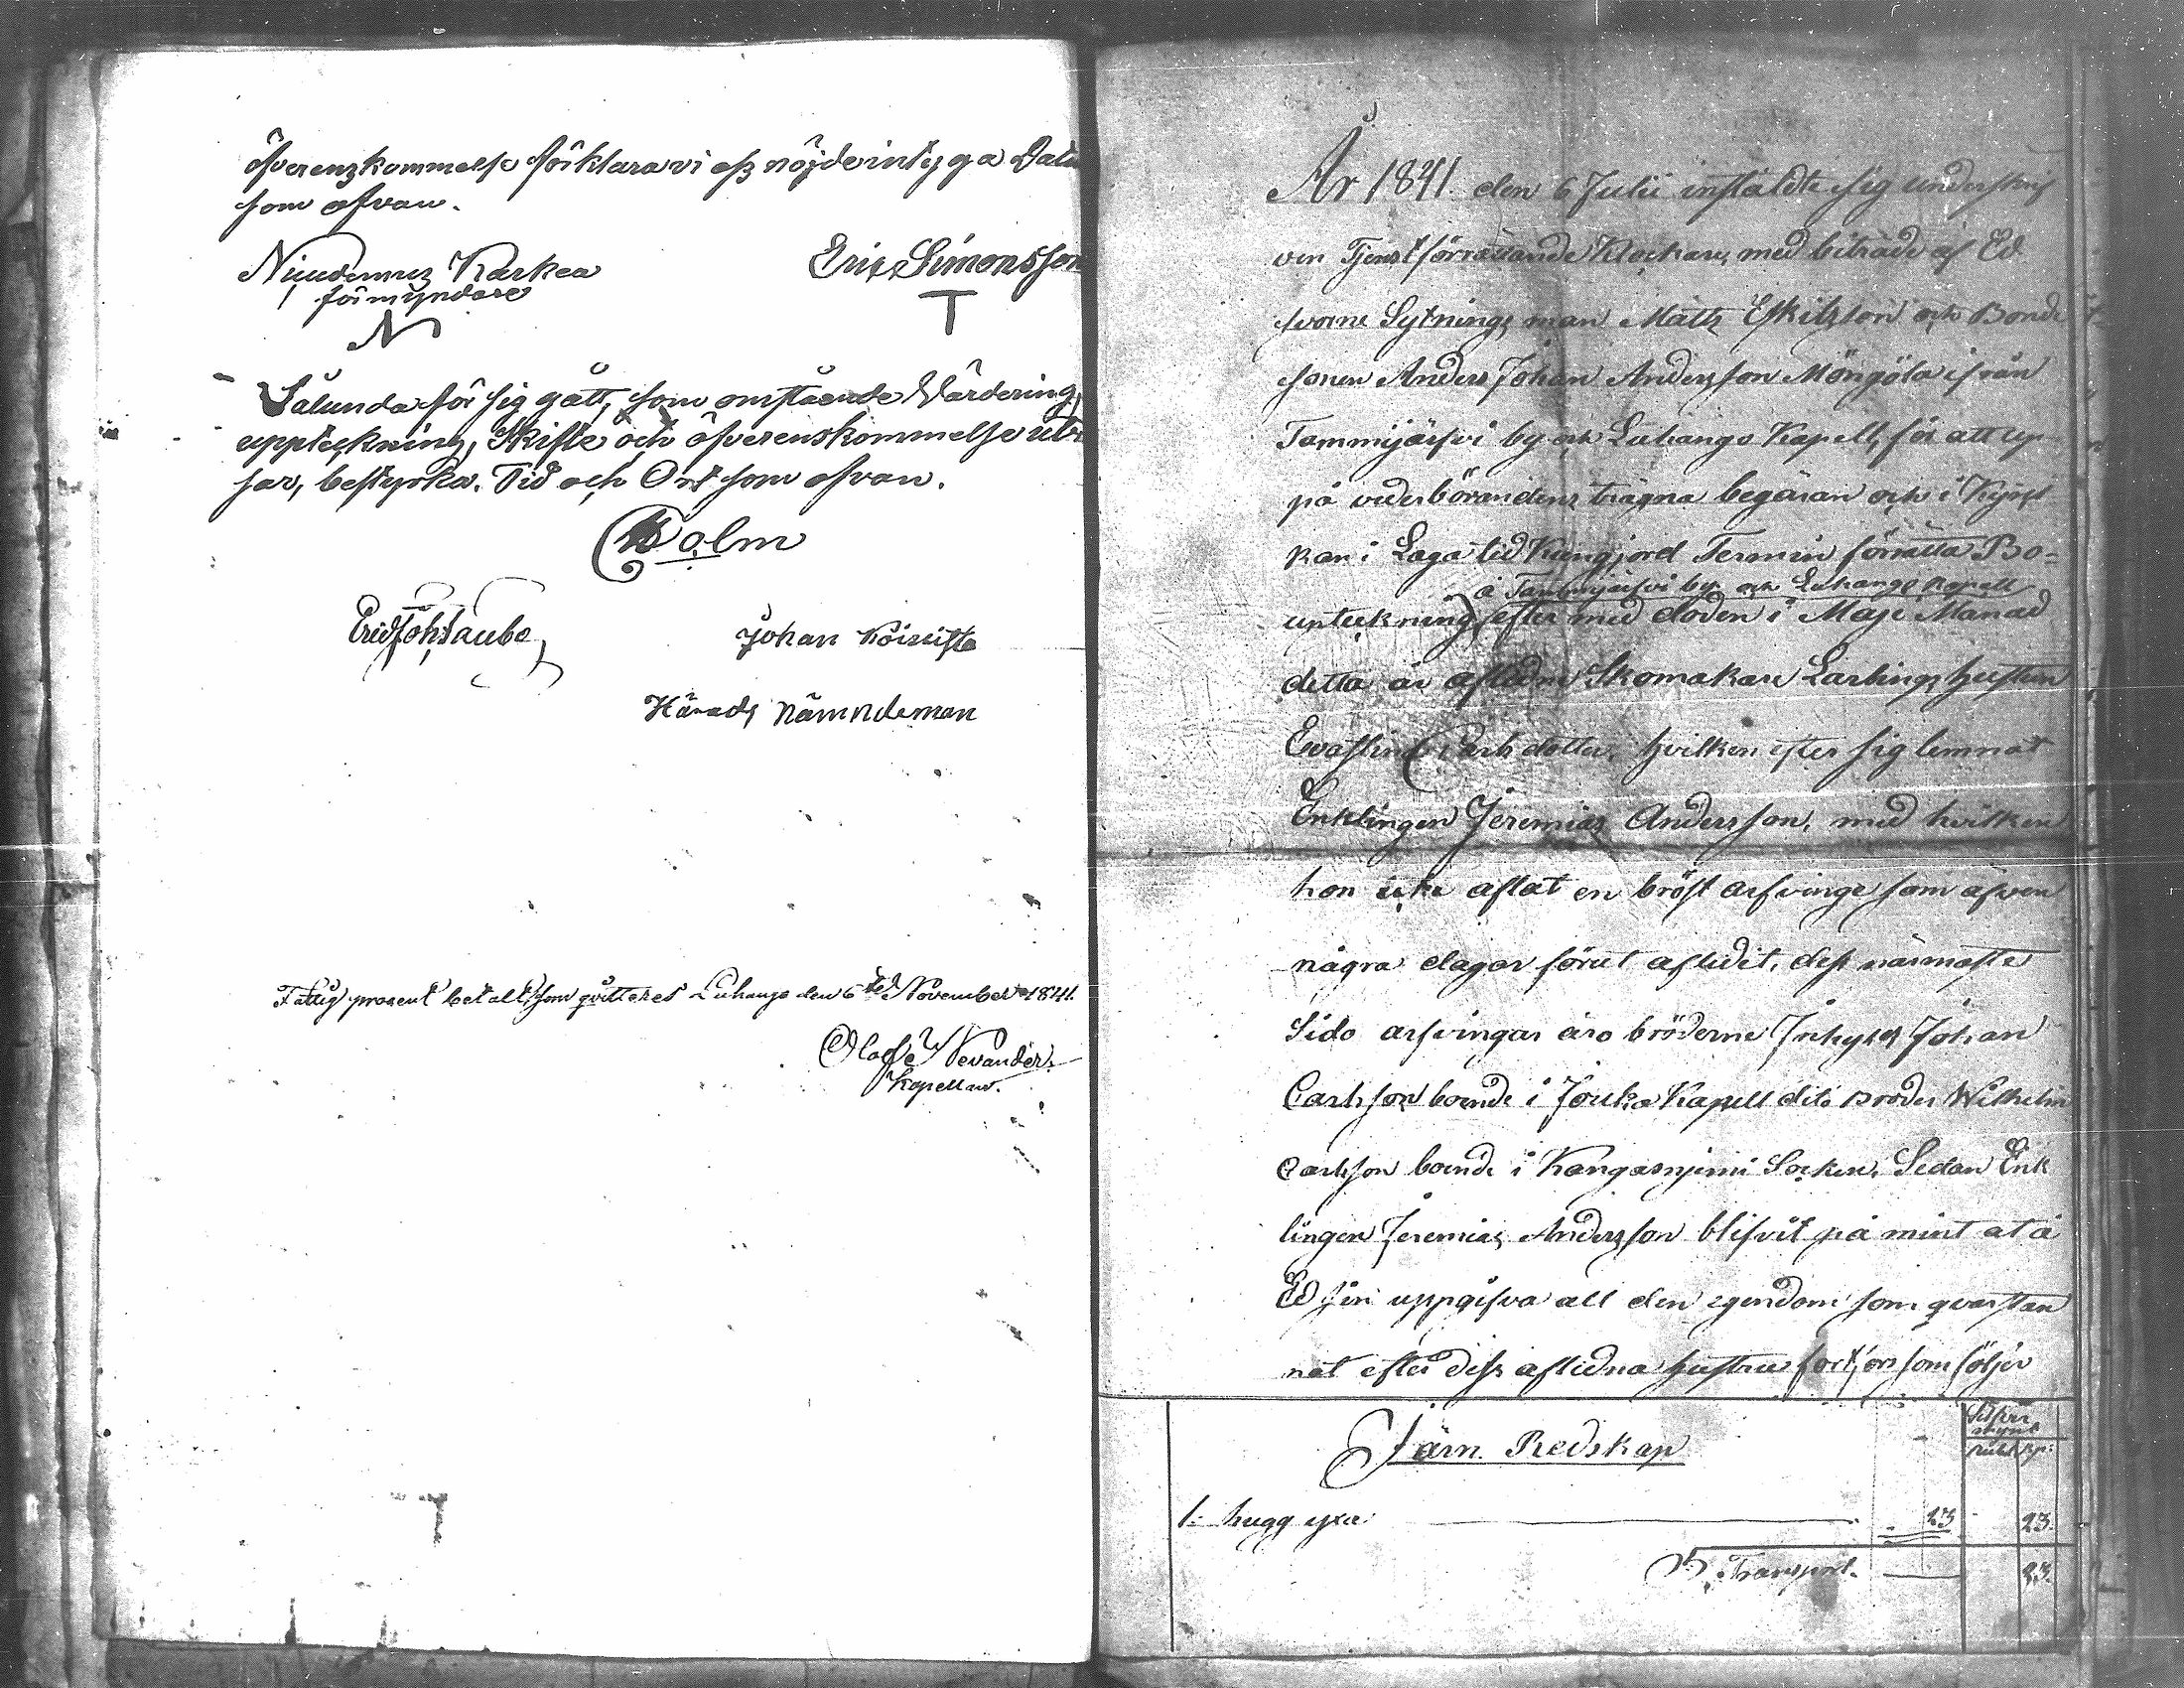 öfverenzkommelse förklara vi oss nöjde intyga Datu
som ofvan.
Karkea
Eric Simonsson
förmyndare
N
T
Sålunda för sig gått, som omstående Wärdering,
uppteckning, Skifte och öfverenskommelse utvi
sar, bestyrka. Tid och Ort som ofvan.
Holm
Johan Koivisto
Härads Nämndeman
Fattig procent betalt, som qvitteres Luhango den 6te November 1841.
Olof Nevander.
Kapellan.
År 1841. den 6 Julii instäldte sig underskrif
ven Tjenstförrättande Klockare, med biträde af Ed
svorne Sytnings man Matts Eskilsson och Bonde
sonen Anders Johan Andersson Möngölä ifrån
Tammijärfvi by och Luhango Kapell, för att up
på vederbörandens trägna begäran och i Kyrs
kan i Laga tid Kungjord Termin förrätta Bo-
å Tammijärfvi by och Luhango Kapell
upteckning, efter med döden i Maji Månad
detta år afledne Skomakare Lärlings hustrun
Carlsdotter, hvilken efter sig lemnat
Enklingen Jeremias Andersson, med hvilken
hon icke aflat en bröst arfvinge som äfven
några dagar förut aflidit, dess närmaste
Sido arfvingar äro bröderne Inhyses Johan
Carlsson boende i Jouka Kapell dito Broder Wilhelm
Carlsson boende i Kangasnjemi Socken. Sedan Enk
lingen Jeremias Andersson blifvit på mint at å
Ed sin uppgifva all den egendom som qvarstan
nat efter dess aflidna hustru som följer
Silfver
mynt
Rub. kp.
Järn Redskap
1. hugg yxa 23 - 23.
Transport. 23.